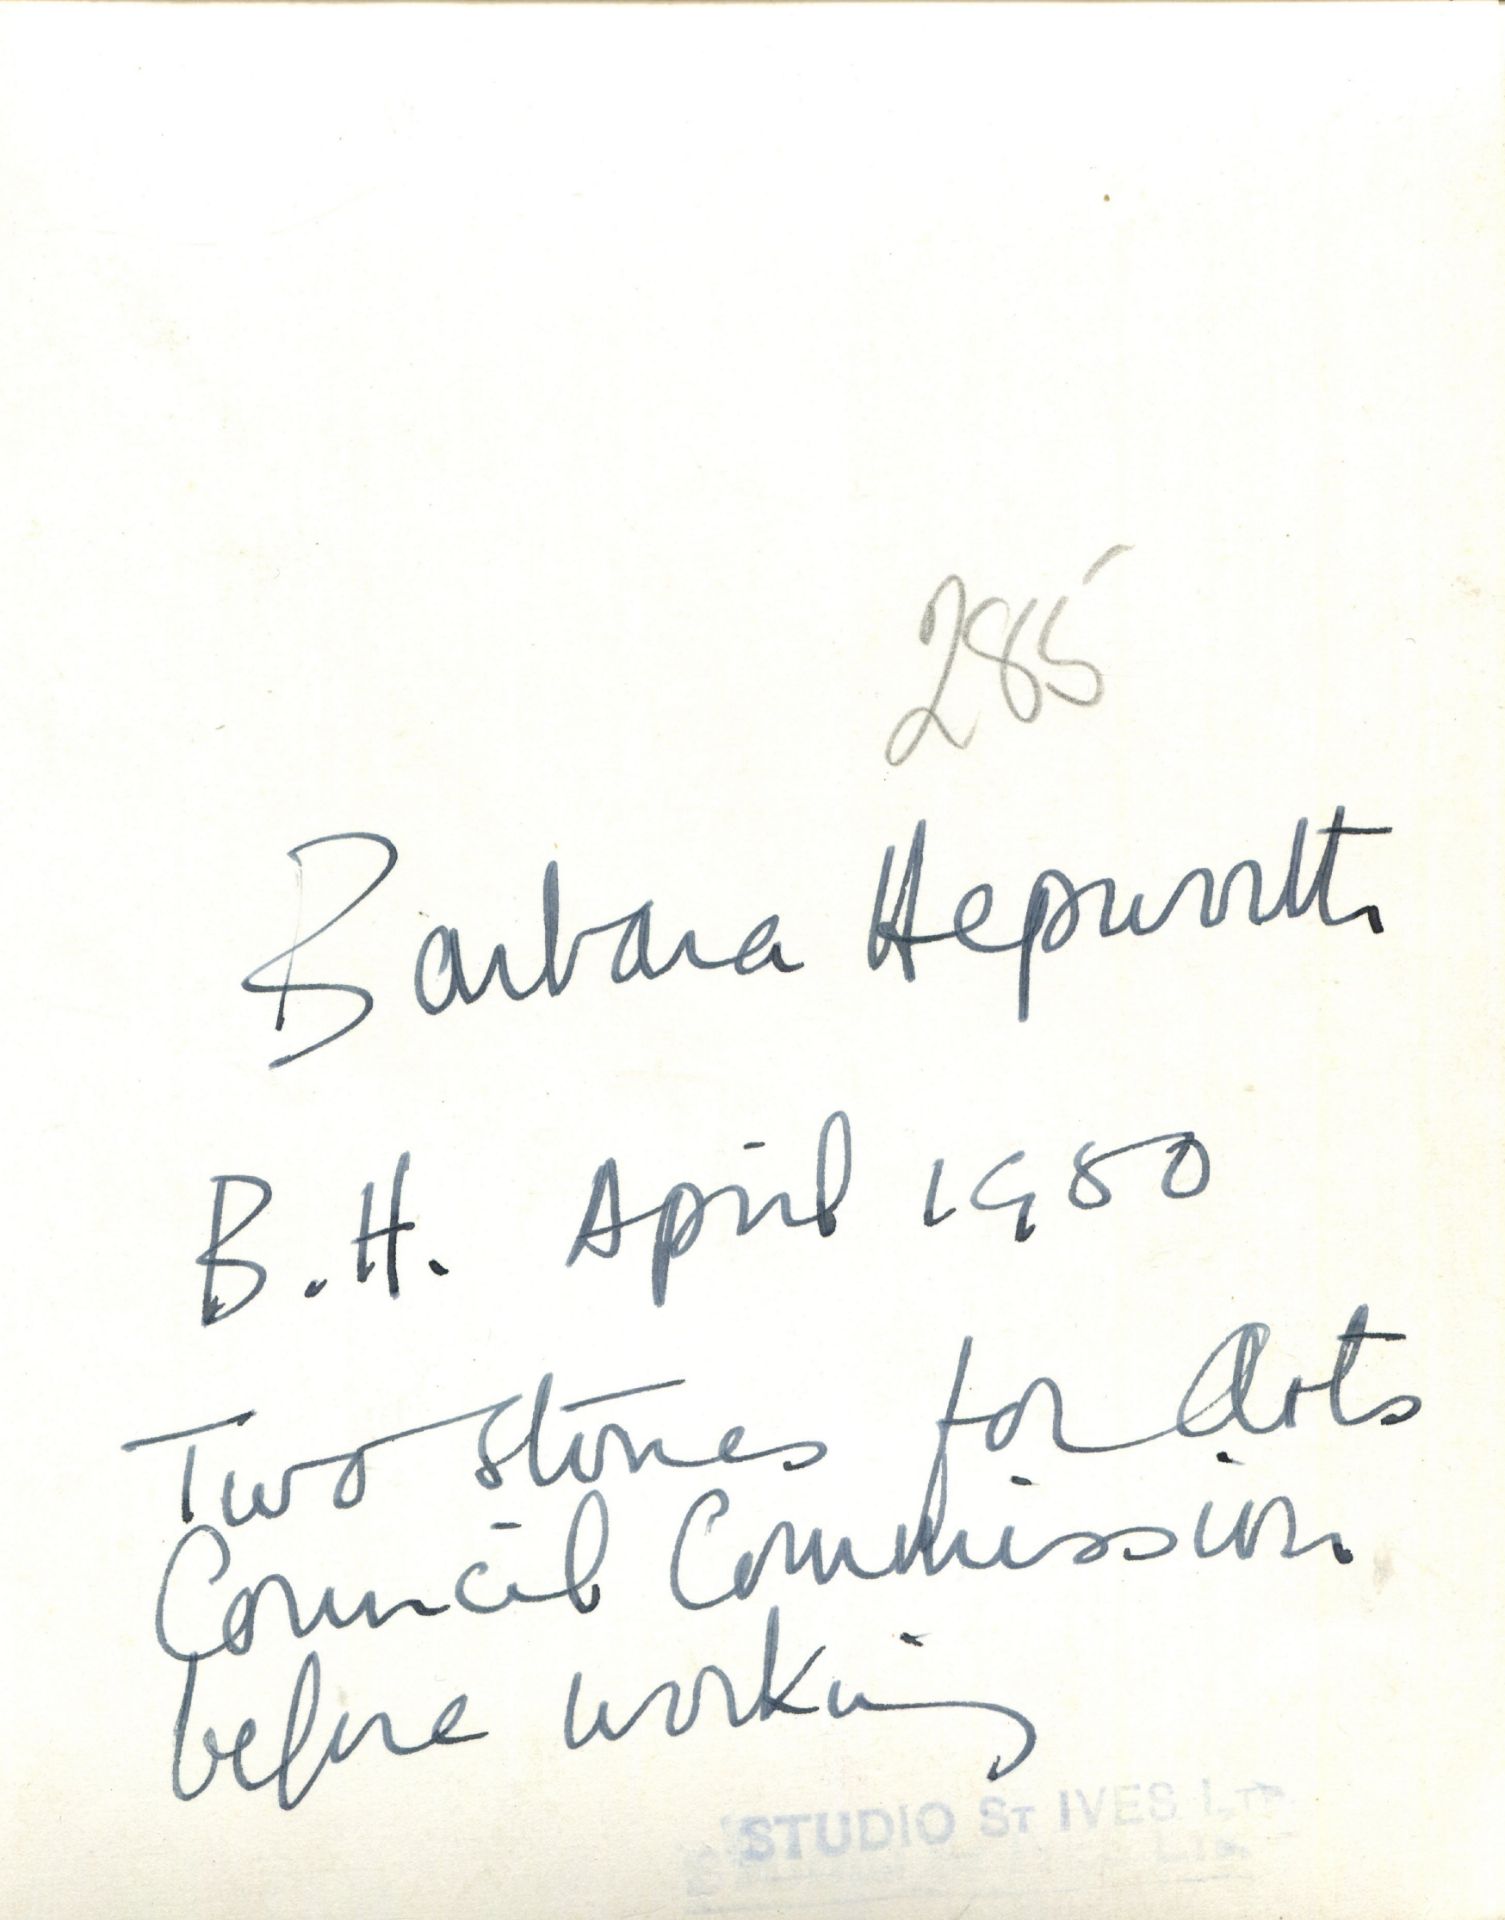 285
Barbara Hepworth
B.H. April 1950
Two Stones for Arts
Council Commission
before working
STUDIO ST IVES LTD